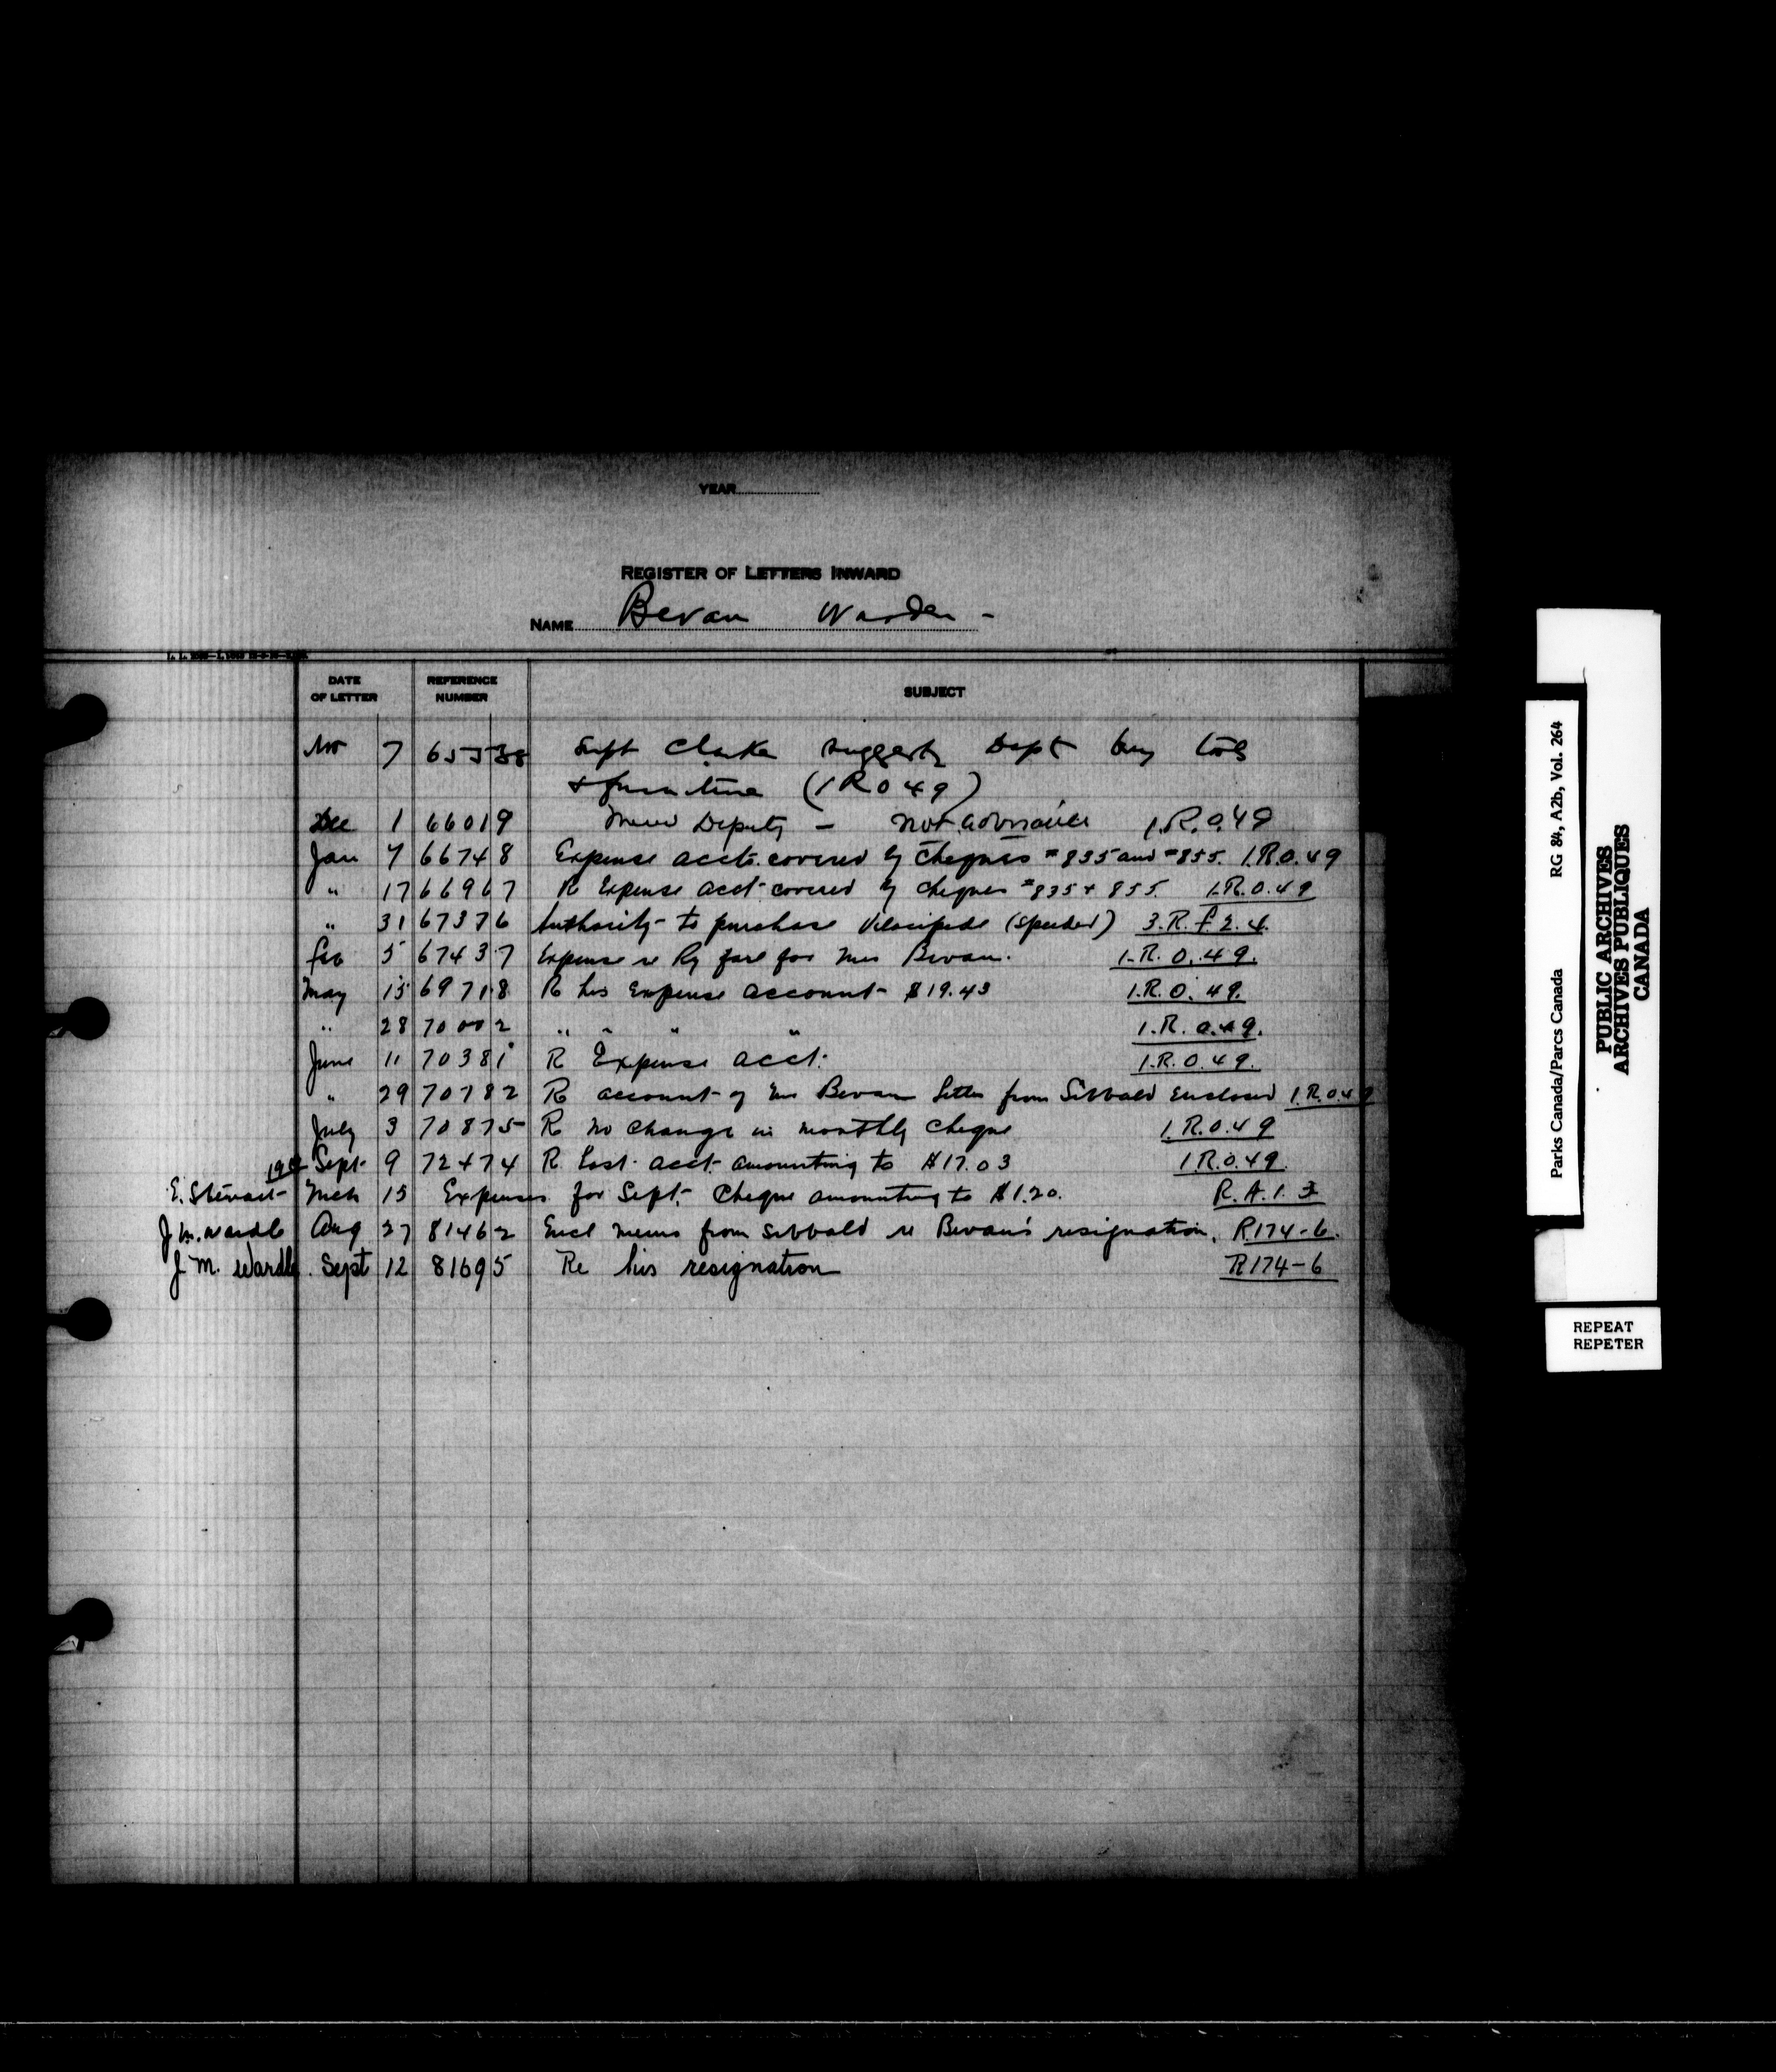 YEAR
REGISTER OF LETTERS INWARD
NAME Bevan Warden -
DATE OF LETTER REFERENCE NUMBER SUBJECT
Nov 7 65538 Supt Clarke suggests Dept buy tools
& furniture (1R049)
Dec 1 66019 Deputy - not advisable 1.R.0.49
Jan 7 66748 Expense accts. covered by Cheques #835 and #855. 1.R.0.49
" 17 66967 R Expense acct covered by cheques #835 & 855. 1.R.0.49
" 31 67376 Authority to purchase Velocipede (speeder) 3.R.f2.4.
feb 5 67437 Expense re Ry fare for Mrs Bevan. 1.R.0.49.
May 15 69718 R his Expense account $19.43 1.R.0.49.
" 28 70002 " " " " 1.R.0.49.
June 11 70381 R Expense acct. 1.R.0.49.
" 29 70782 R account of Mrs Bevan letter from Sibbald Enclosed 1.R.0.49
July 3 70875 R no change in monthly cheque 1.R.0.49
Sept 9 72474 R last acct. amounting to $17.03 1.R.0.49.
E. Stewart Mch 15 Expenses for Sept. Cheque amounting to $1.20. R.A.1.3
J M. Wardle Aug 27 81462 Encl memo from Sibbald re Bevan's resignation, R174-6.
J M. Wardle. Sept 12 81695 Re his resignation R174-6
Parks Canada/Parcs Canada RG 84, A2b, Vol. 264
PUBLIC ARCHIVES
ARCHIVES PUBLIQUES
CANADA
REPEAT
REPETER